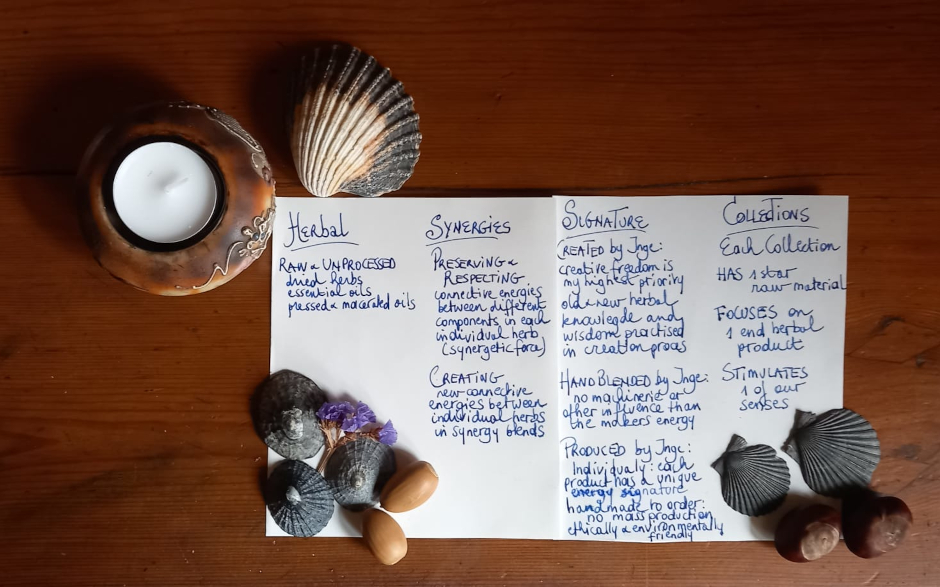 Herbal
RAW & UNPROCESSED
dried herbs
essential oils
pressed & macerated oils
SYNERGIES
PRESERVING &
RESPECTING
connective energies
between different
components in each
individual herb
(synergetic force)
CREATING
new connective
energies between
individual herbs
in synergy blends
SIGNATURE
CREATED by Inge:
creative freedom is
my highest priority
old & new herbal
knowlegde and
wisdom practised
in creation proces
HAND BLENDED by Inge:
no machinerie or
other influence than
the makers energy
PRODUCED by Inge:
Individualy: each
product has a unique
energy signature
handmade to order:
no mass production
ethically & environmentally
friendly
COLLECTIONS
Each Collection
HAS 1 star
raw material
FOCUSES on
1 end herbal
product
STIMULATES
1 of our
senses